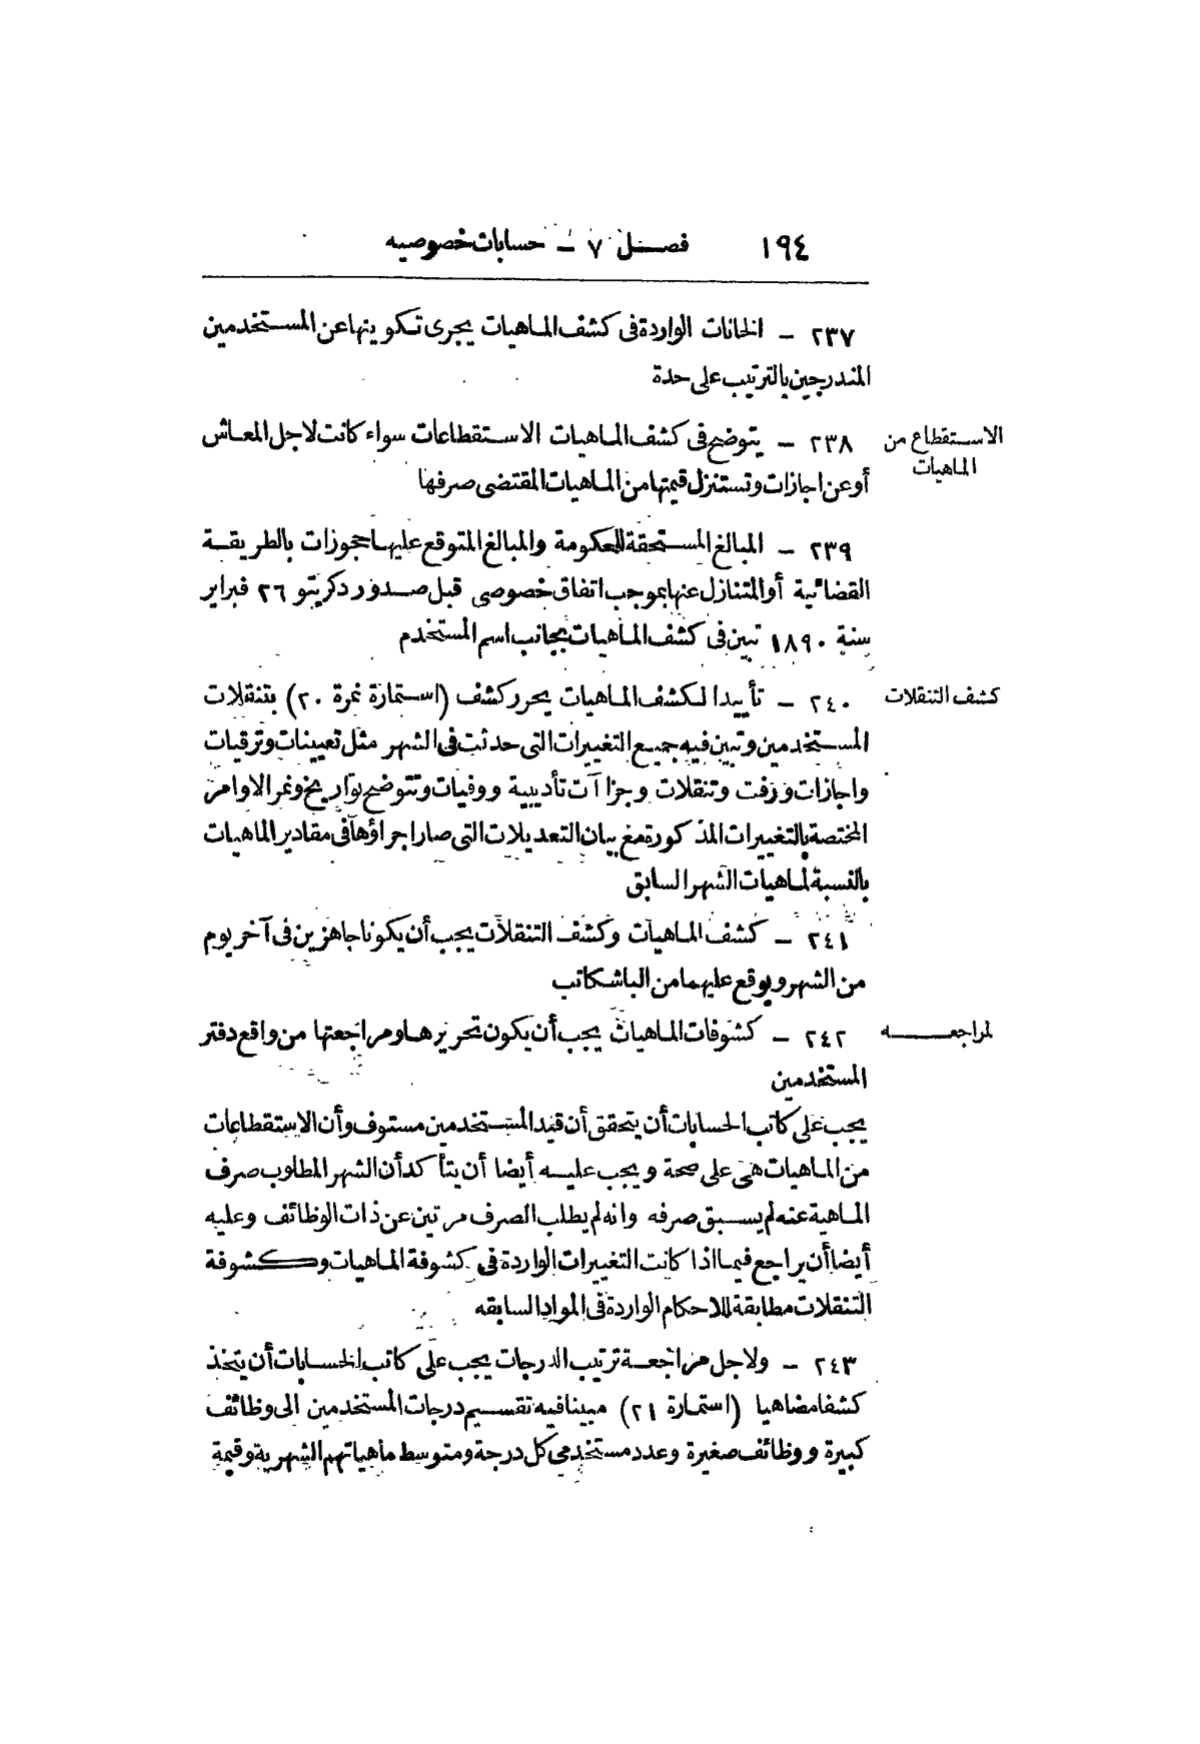 ١٩٤ فصل ٧ – حسابات خصوصيه
٢٣٧ – الخانات الواردة فى كشف الماهيات يجرى تكوينها عن المستخدمين
المندرجين بالترتيب على حدة
الاستقطاع من
الماهيات
٢٣٨ – يتوضح فى كشف الماهيات الاستقطاعات سواء كانت لاجل المعاش
أو عن اجازات وتستنزل قيمتها من الماهيات المقتضى صرفها
٢٣٩ – المبالغ المستحقة للحكومة والمبالغ المتوقع عليها حجوزات بالطريقة
القضائية أو المتنازل عنها بموجب اتفاق خصوصى قبل صدور دكريتو ٢٦ فبراير
سنة ١٨٩٠ تبين فى كشف الماهيات بجانب اسم المستخدم
كشف التنقلات
٢٤٠ – تأييدا لكشف الماهيات يحرر كشف (استمارة نمرة ٢٠) بتنقلات
المستخدمين وتبين فيه جميع التغييرات التى حدثت فى الشهر مثل تعيينات وترقيات
واجازات ورفت وتنقلات وجزاآت تأديبية ووفيات وتتوضح تواريخ ونمر الاوامر
المختصة بالتغييرات المذكورة مع بيان التعديلات التى صار اجراؤها فى مقادير الماهيات
بالنسبة لماهيات الشهر السابق
٢٤١ – كشف الماهيات وكشف التنقلات يجب أن يكونا جاهزين فى آخر يوم
من الشهر ويوقع عليهما من الباشكاتب
لمراجعه
٢٤٢ – كشوفات الماهيات يجب أن يكون تحريرها ومراجعتها من واقع دفتر
المستخدمين
يجب على كاتب الحسابات أن يتحقق أن قيد المستخدمين مستوف وأن الاستقطاعات
من الماهيات هى على صحة ويجب عليه أيضا أن يتأكد أن الشهر المطلوب صرف
الماهية عنه لم يسبق صرفه وانه لم يطلب الصرف مرتين عن ذات الوظائف وعليه
أيضا أن يراجع فيما اذا كانت التغييرات الواردة فى كشوفة الماهيات وكشوفة
التنقلات مطابقة للاحكام الواردة فى المواد السابقه
٢٤٣ – ولاجل مراجعة ترتيب الدرجات يجب على كاتب الحسابات أن يتخذ
كشفا مضاهيا (استمارة ٢١) مبينا فيه تقسيم درجات المستخدمين الى وظائف
كبيرة ووظائف صغيرة وعدد مستخدمى كل درجة ومتوسط ماهياتهم الشهرية وقيمة